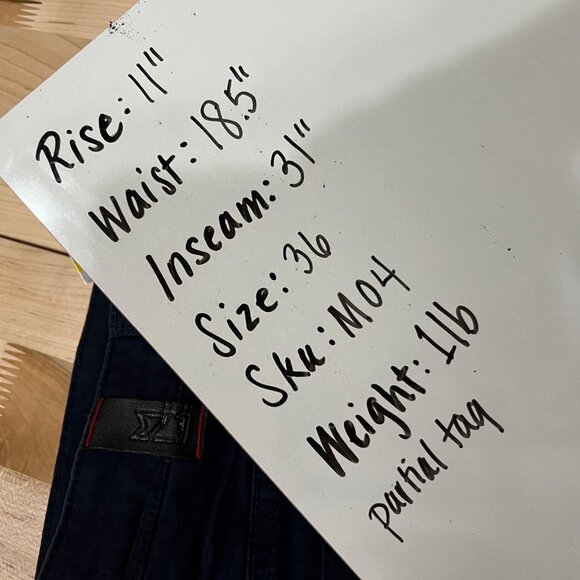 Rise: 11"
Waist: 18.5"
Inseam: 31"
Size: 36
Sku: M04
Weight: 1lb
Partial tag